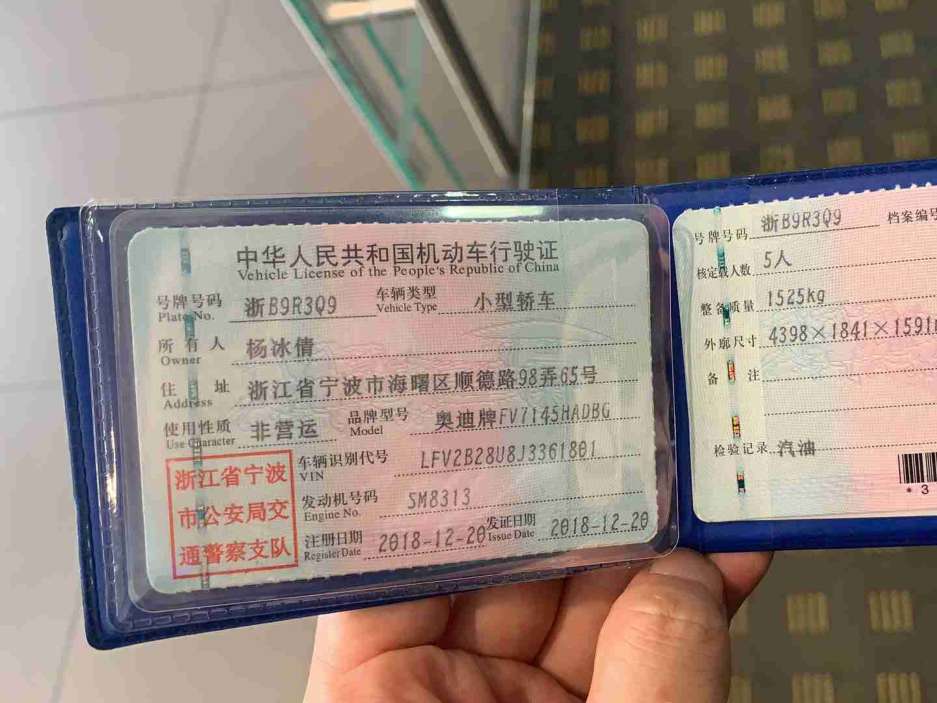 中华人民共和国机动车行驶证
Vehicle License of the People's Republic of China
号牌号码 浙B9R3Q9 车辆类型 小型轿车
Plate No. Vehicle Type
所有人 杨冰倩
Owner
住址 浙江省宁波市海曙区顺德路98弄65号
Address
使用性质 非营运 品牌型号 奥迪牌FV7145HADBG
Use Character Model
浙江省宁波
市公安局交
通警察支队
车辆识别代号 LFV2B28U8J3361801
VIN
发动机号码 SM8313
Engine No.
注册日期 2018-12-20 发证日期 2018-12-20
Register Date Issue Date
号牌号码 浙B9R3Q9 档案编号
核定载人数 5人
整备质量 1525kg
外廓尺寸 4398×1841×1591
备注
检验记录 汽油
*3